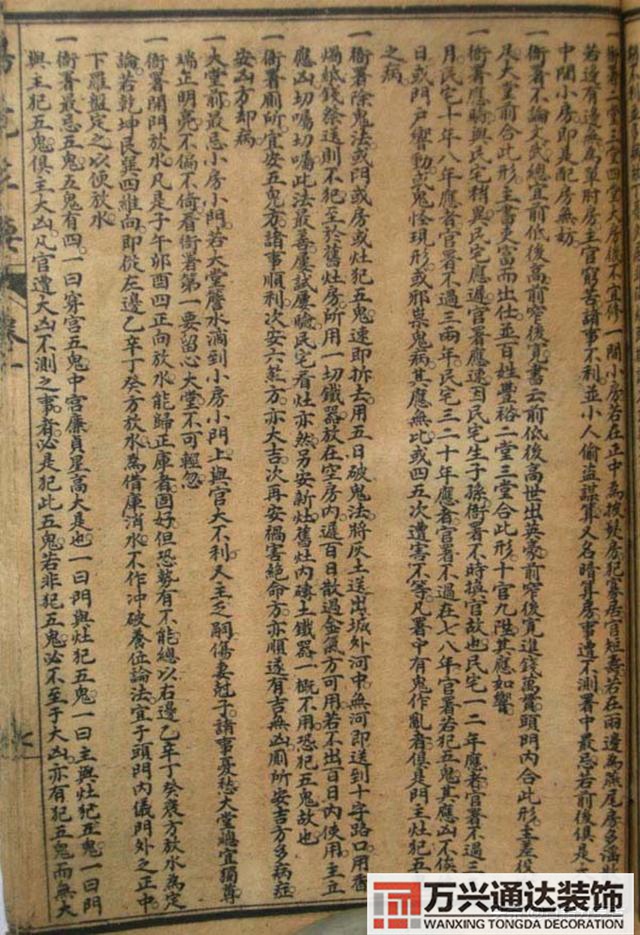 一衙署二堂三堂四堂大房後不宜得一間小房若在正中為披
若邊有邊無為單肘房主官窮苦諸事不利並小人偷盜謀算又名暗算房事遭不測署中最忌若前後俱是大
中間小房即是配房無妨
一衙署不論文武總宜前低後高前窄後寬書云前低後高世出英豪前窄後寬進錢萬貫頭門內合此形主差役
足大堂前合此形主書吏富而出仕並百姓豐裕二堂三堂合此形十官九陞其應如響
一衙署應驗與民宅稍異民宅應遲官署應速因民宅生子孫衙署不時換官故也民宅一二年應者官署不過三
月民宅十年八年應者官署不過三兩年民宅三二十年應者官署不過在七八年官署若犯五鬼其應凶不俟
日或門戶響動或鬼怪現形或邪祟鬼病其應無比或四五次遭害不等凡署中有鬼作亂者俱是門主灶犯五
之病
一衙署除鬼法或門或房或灶犯五鬼速即拆去用五日破鬼法將灰土送出城外河中無河即送到十字路口用香
燭紙錢祭送則不犯至於舊灶房所用一切鐵器放在空房內過百日散過金氣方可用若不出百日內使用主立
應凶切囑切囑此法最善屢試屢驗民宅看灶亦然另安新灶舊灶內磚土鐵器一概不用恐犯五鬼故也
一衙署廟所宜安五鬼方諸事順利次安六煞方亦大吉次再安禍害絕命方亦順遂有吉無凶廁所安吉方多病症
安凶方却病
一大堂前最忌小房小門若大堂簷水滴到小房小門上與官大不利又主乏嗣傷妻尅子諸事憂愁大堂總宜獨尊
端正明亮不偏不倚看衙署第一要留心大堂不可輕忽
一衙署開門放水凡是子午卯酉四正向放水能歸正庫者固好但恐勢有不能總以右邊乙辛丁癸衰方放水為定
論若乾坤艮巽四維向即從左邊乙辛丁癸方放水為借庫消水不作冲破養位論法宜于頭門內儀門外之正中
下羅盤定之以便放水
一衙署最忌五鬼五鬼有四一曰穿宮五鬼中宮廉貞星高大是也一曰門與灶犯五鬼一曰主與灶犯五鬼一曰門
與主犯五鬼俱主大凶凡官遭大凶不測之事者必是犯此五鬼若非犯五鬼必不至于大凶亦有犯五鬼而無大
万兴通达装饰
WANXING TONGDA DECORATION